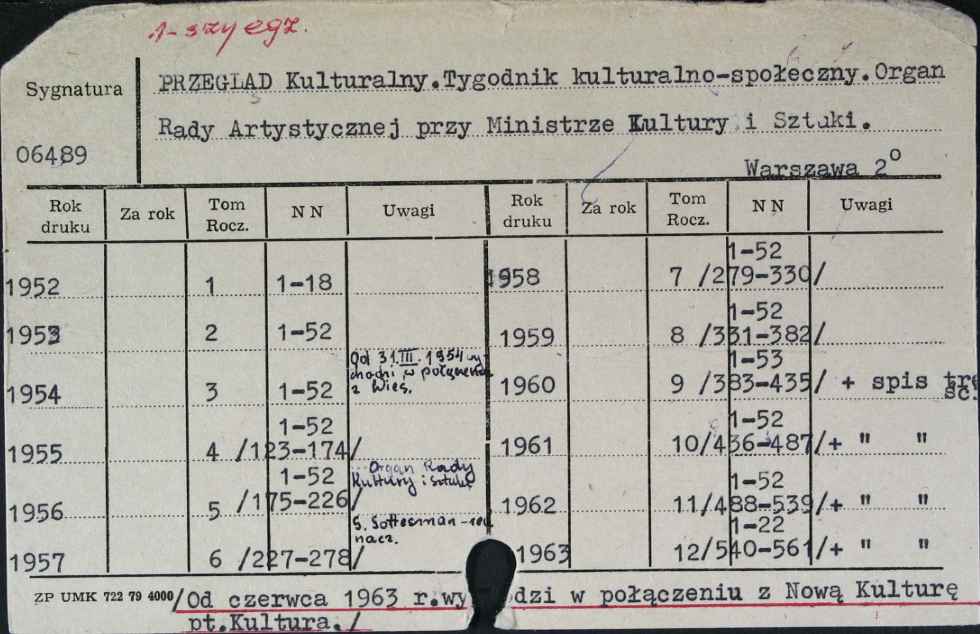 1-szy egz.
Sygnatura
06489
PRZEGLAD Kulturalny.Tygodnik kulturalno-społeczny.Organ
Rady Artystycznej przy Ministrze Kultury i Sztuki.
Warszawa 2°
Rok druku Za rok Tom Rocz. N N Uwagi Rok druku Za rok Tom Rocz. N N Uwagi
1952 1 1-18 1958 7 1-52 /279-330/
1953 2 1-52 1959 8 1-52 /331-382/
1954 3 1-52 Od 31.III.1954 wychodzi w połączeniu z Wieś. 1960 9 1-53 /383-435/ + spis treśc.
1955 4 1-52 /123-174/ 1961 10 1-52 /436-487/+ " "
1956 5 1-52 /175-226/ Organ Rady Kultury i Sztuki 1962 11 1-52 /488-539/+ " "
1957 6 /227-278/ nacz. 1963 12 1-22 /540-561/+ " "
ZP UMK 722 79 4000
/Od czerwca 1963 r.wy dzi w połączeniu z Nową Kulturę
pt.Kultura./